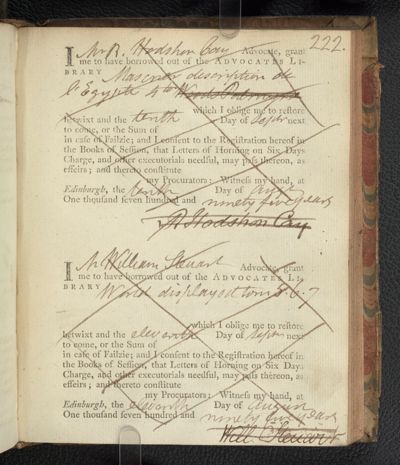 222.
I Mr R. Hodshon Cay Advocate, grant
me to have borrowed out of the ADVOCATES LI-
BRARY Mascrier description de
l'Egypte 4to
which I oblige me to restore
betwixt and the tenth Day of Septr next
to come, or the Sum of
in case of Failzie; and I consent to the Registration hereof in
the Books of Session, that Letters of Horning on Six Days
Charge, and other executorials needful, may pass thereon, as
effeirs; and thereto constitute
my Procurators: Witness my hand, at
Edinburgh, the tenth Day of Augt
One thousand seven hundred and ninety five years
R Hodshon Cay
I Mr William Steuart Advocate, grant
me to have borrowed out of the ADVOCATES LI-
BRARY
World displayed tom 5. 6. 7
which I oblige me to restore
betwixt and the eleventh Day of Septr next
to come, or the Sum of
in case of Failzie; and I consent to the Registration hereof in
the Books of Session, that Letters of Horning on Six Days
Charge, and other executorials needful, may pass thereon, as
effeirs; and thereto constitute
my Procurators: Witness my hand, at
Edinburgh, the eleventh Day of August
One thousand seven hundred and ninety five years
Will Steuart